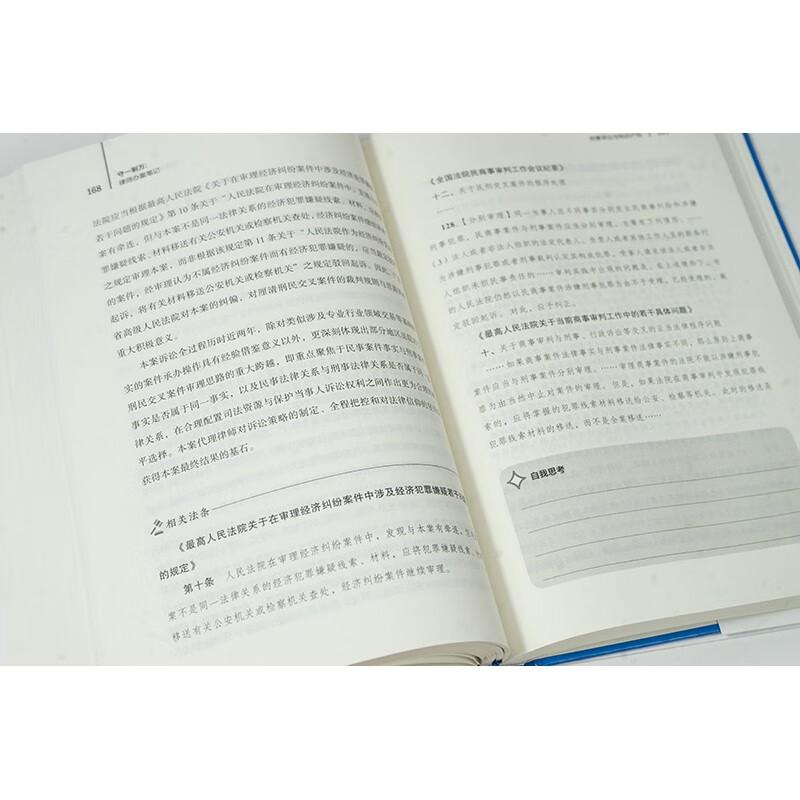 168
守一则万:
律师办案笔记
法院应当根据最高人民法院《关于在审理经济纠纷案件中涉及经济犯罪嫌疑
若干问题的规定》第10条关于“人民法院在审理经济纠纷案件中,发现与本
案有牵连,但与本案不是同一法律关系的经济犯罪嫌疑线索、材料,应将犯
罪嫌疑线索、材料移送有关公安机关或检察机关查处,经济纠纷案件继续审理”
之规定审理本案,而非根据该规定第11条关于“人民法院作为经济纠纷受理
的案件,经审理认为不属经济纠纷案件而有经济犯罪嫌疑的,应当裁定驳回
起诉,将有关材料移送公安机关或检察机关”之规定驳回起诉。因此,
省高级人民法院对本案的纠偏,对厘清刑民交叉案件的裁判规则与
重大积极意义。
本案诉讼全过程历时近两年,除对类似涉及专业行业领域交易
实的案件承办操作具有经验借鉴意义以外,更深刻体现出部分地区法院
刑民交叉案件审理思路的重大跨越,即重点聚焦于民事案件事实与刑事案
事实是否属于同一事实,以及民事法律关系与刑事法律关系是否属于同一
律关系,在合理配置司法资源与保护当事人诉讼权利之间作出更为公
平选择。本案代理律师对诉讼策略的制定、全程把控和对法律信仰的
获得本案最终结果的基石。
相关法条
《最高人民法院关于在审理经济纠纷案件中涉及经济犯罪嫌疑若干问
的规定》
第十条 人民法院在审理经济纠纷案件中,发现与本案有牵连,
案不是同一法律关系的经济犯罪嫌疑线索、材料,应将犯罪嫌疑线索、
移送有关公安机关或检察机关查处,经济纠纷案件继续审理。
《全国法院民商事审判工作会议纪要》
十二、关于民刑交叉案件的程序处理
……
128.【分别审理】同一当事人因不同事实分别发生民商事纠纷和涉嫌
刑事犯罪,民商事案件与刑事案件应当分别审理,主要有下列情形:
(3)法人或者非法人组织的法定代表人、负责人或者其他工作人员的职务行
为涉嫌刑事犯罪或者刑事裁判认定其构成犯罪,受害人请求该法人或者非法
人组织承担民事责任的……审判实践中出现的问题是,在上述情形下,有
的人民法院仍然以民商事案件涉嫌刑事犯罪为由不予受理,已经受理的,裁
定驳回起诉。对此,应予纠正。
《最高人民法院关于当前商事审判工作中的若干具体问题》
十、关于商事审判与刑事、行政诉讼等交叉的正当法律程序问题
……如果商事案件法律事实与刑事案件法律事实不同,那么原则上商事
案件应当与刑事案件分别审理。……审理商事案件的法院不能以涉嫌刑事犯
罪为由当然中止对案件的审理。但是,如果法院在商事审判中发现犯罪线
索的,应将掌握的犯罪线索材料移送给公安、检察等机关。此时的移送是
犯罪线索材料的移送,而不是全案移送……
自我思考